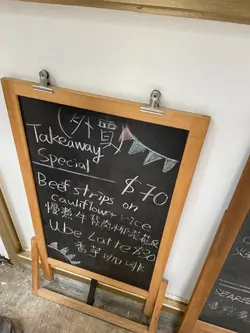 (外賣)
Takeaway
Special
$70
Beef strips on
cauliflower rice
慢煮牛柳肉椰菜花飯
Ube Latte $20
香芋咖啡